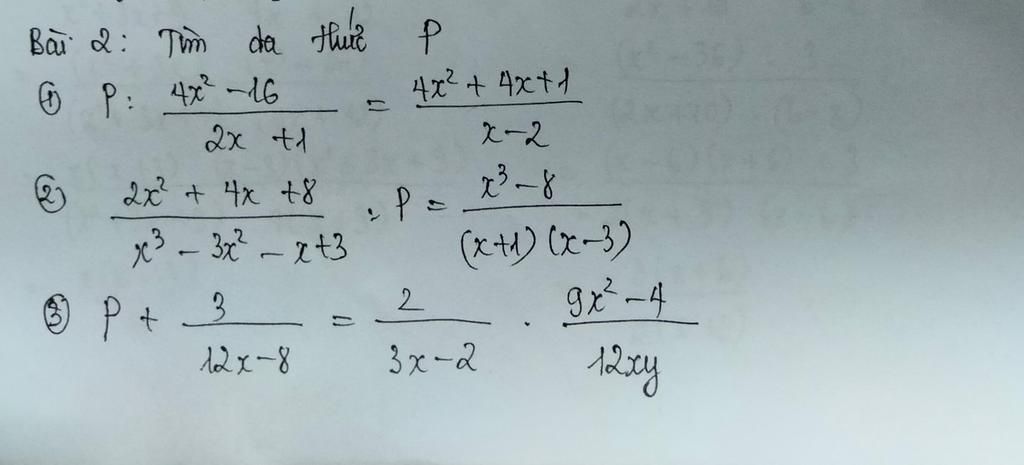 Bài 2: Tìm đa thức P
① P: (4x² - 16)/(2x + 1) = (4x² + 4x + 1)/(x - 2)
② (2x² + 4x + 8)/(x³ - 3x² - x + 3) . P = (x³ - 8)/((x+1)(x-3))
③ P + 3/(12x - 8) = 2/(3x - 2) . (9x² - 4)/(12xy)